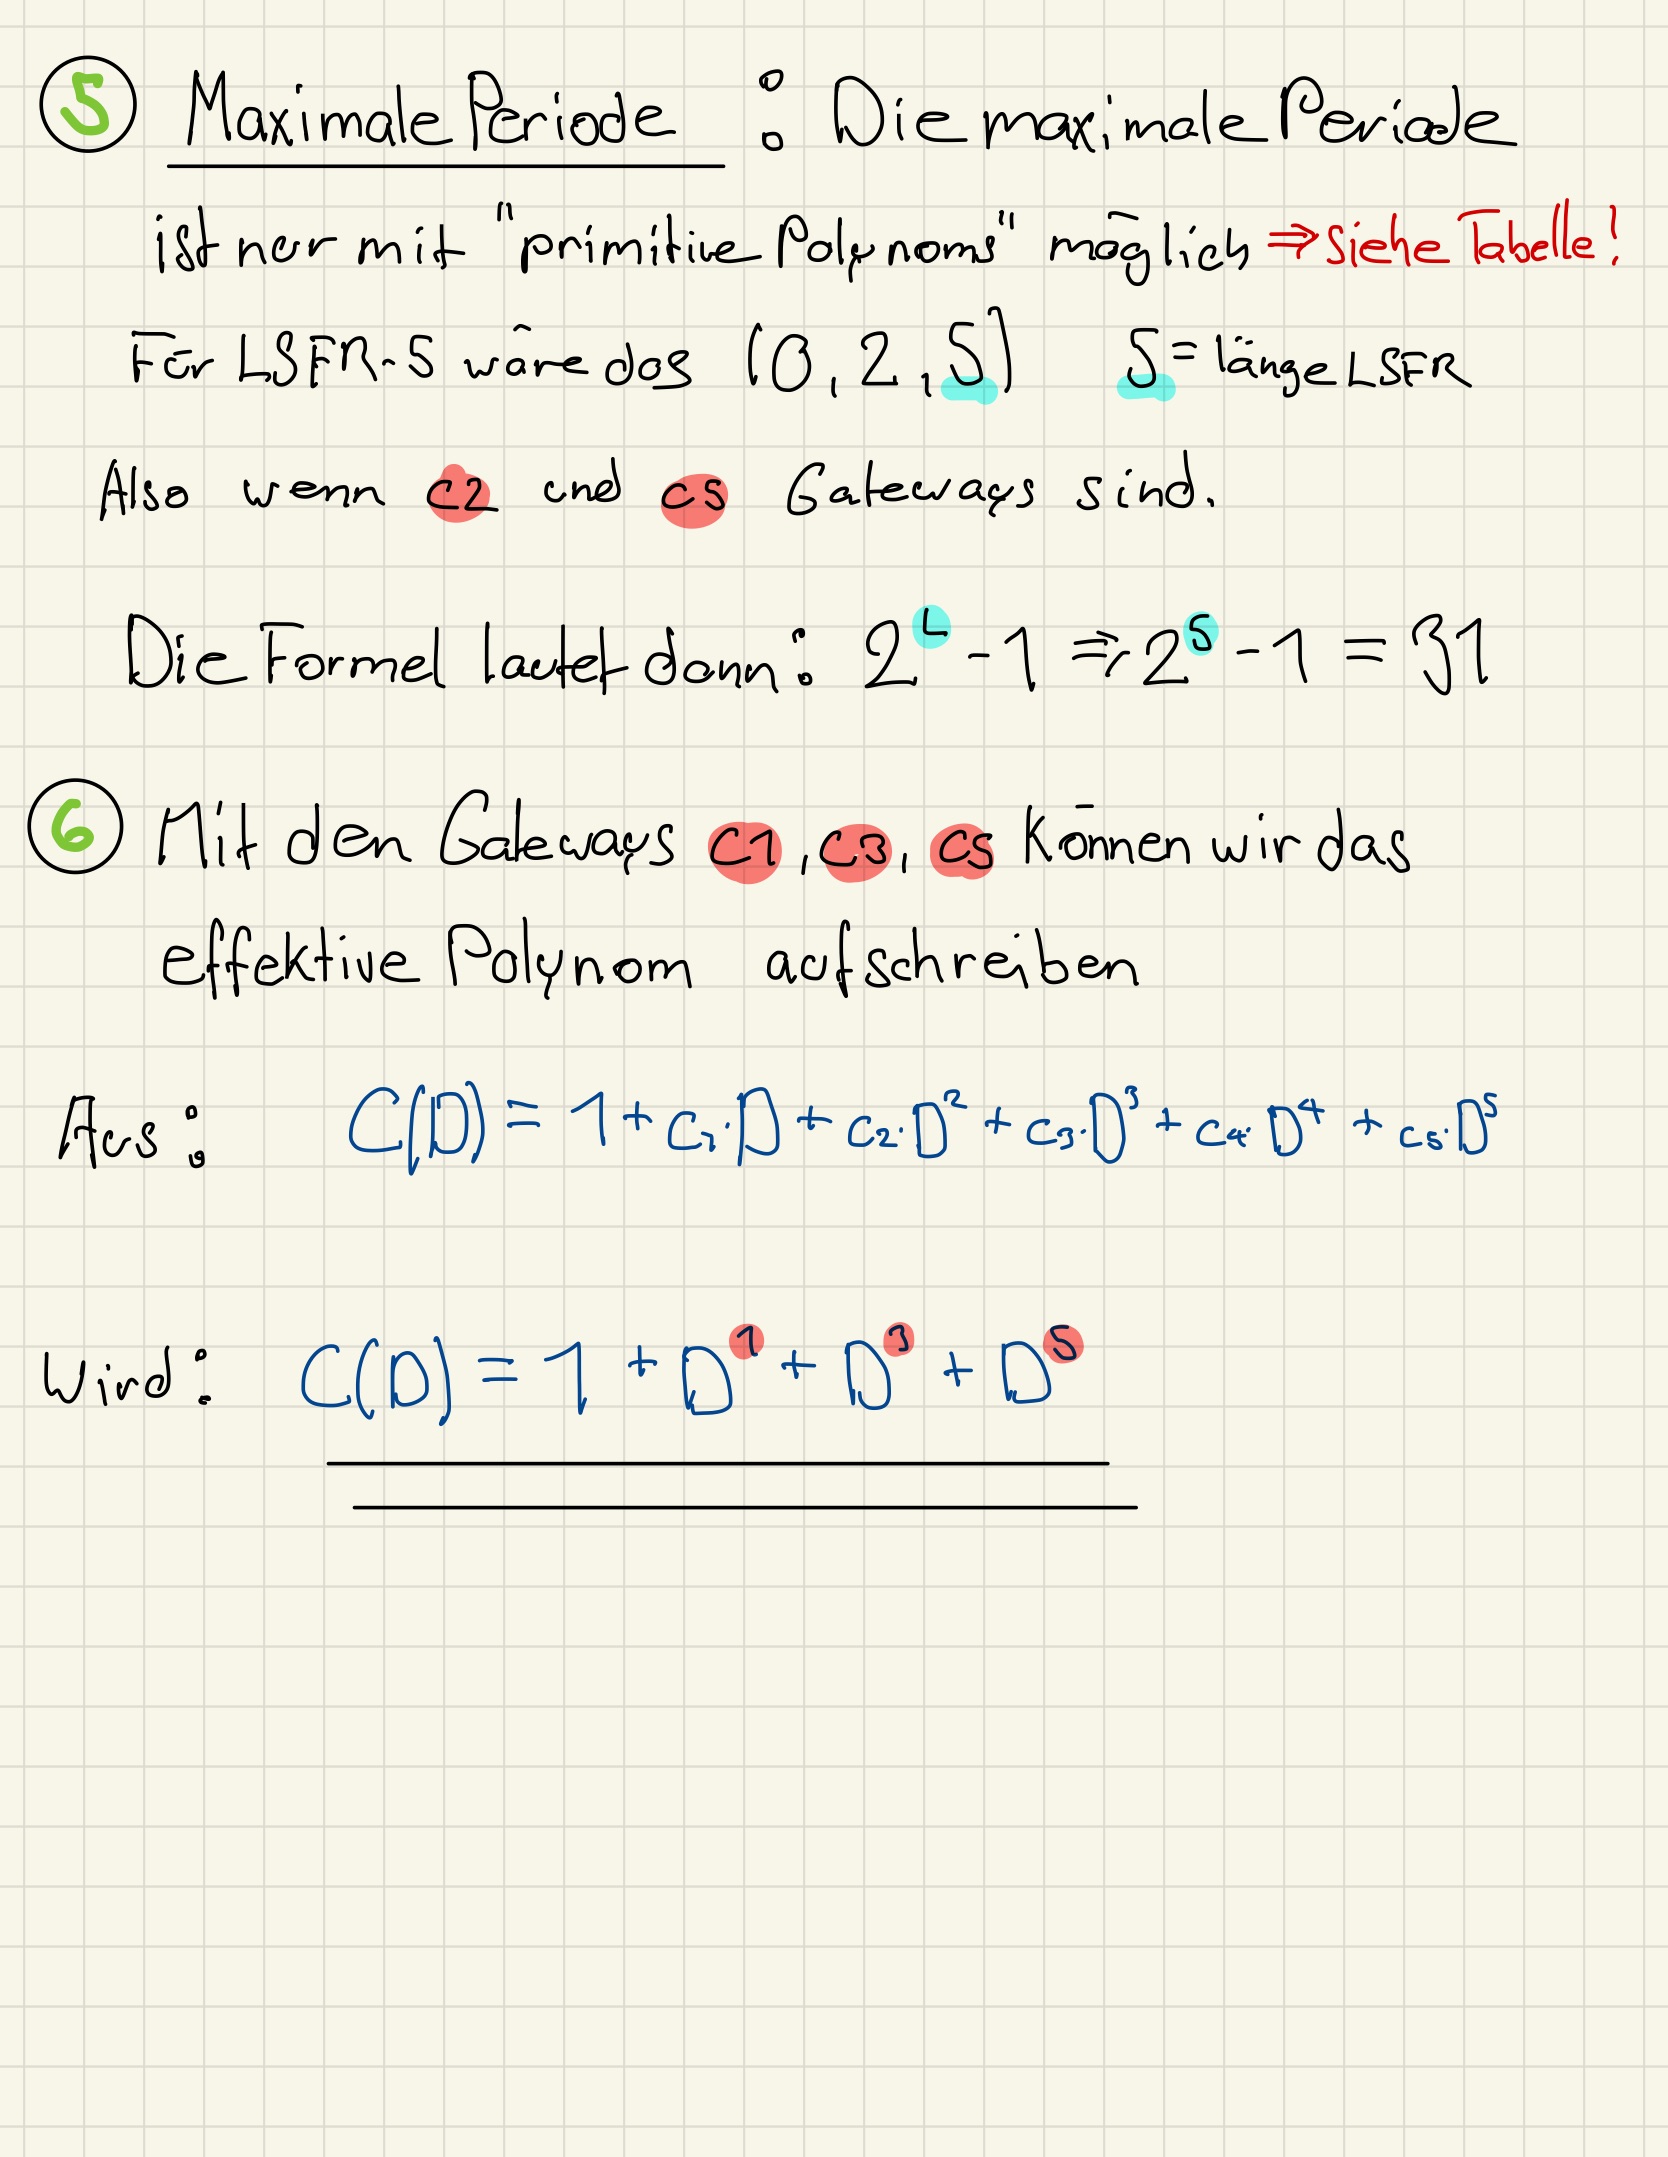 5 Maximale Periode : Die maximale Periode
ist nur mit "primitive Polynoms" möglich ⇒ siehe Tabelle!
Für LSFR-5 wäre das (0, 2, 5) 5 = länge LSFR
Also wenn c2 und c5 Gateways sind.
Die Formel lautet dann: 2^L - 1 ⇒ 2^5 - 1 = 31
6 Mit den Gateways c1, c3, c5 können wir das
effektive Polynom aufschreiben
Aus: C(D) = 1 + c₁·D + c₂·D² + c₃·D³ + c₄·D⁴ + c₅·D⁵
Wird: C(D) = 1 + D¹ + D³ + D⁵